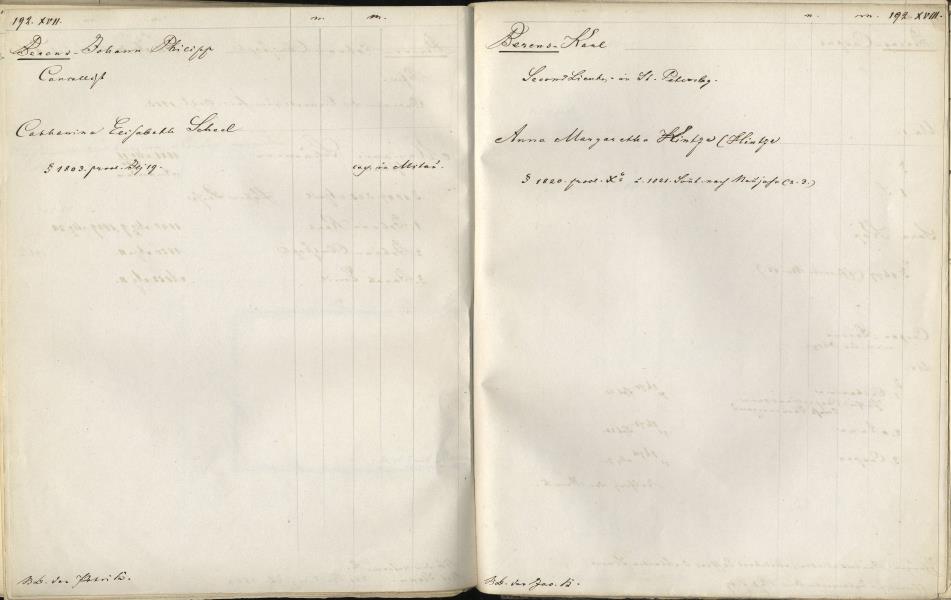 192. XVII.
n. m.
Berens - Johann Philipp
Cancellist
Catharina Elisabeth Scheel
§ 1803. procl. 19.
cop. in Mitau.
Bb. der Petri K.
n. m. 192 XVIII.
Berens - Karl
SecondLieut. - in St. Petersbg.
Anna Margaretha Hintze (Hintze
§ 1820. procl. X. 1821. Sonnt. nach Neujahr (2. 3.)
Bb. der Jac. K.